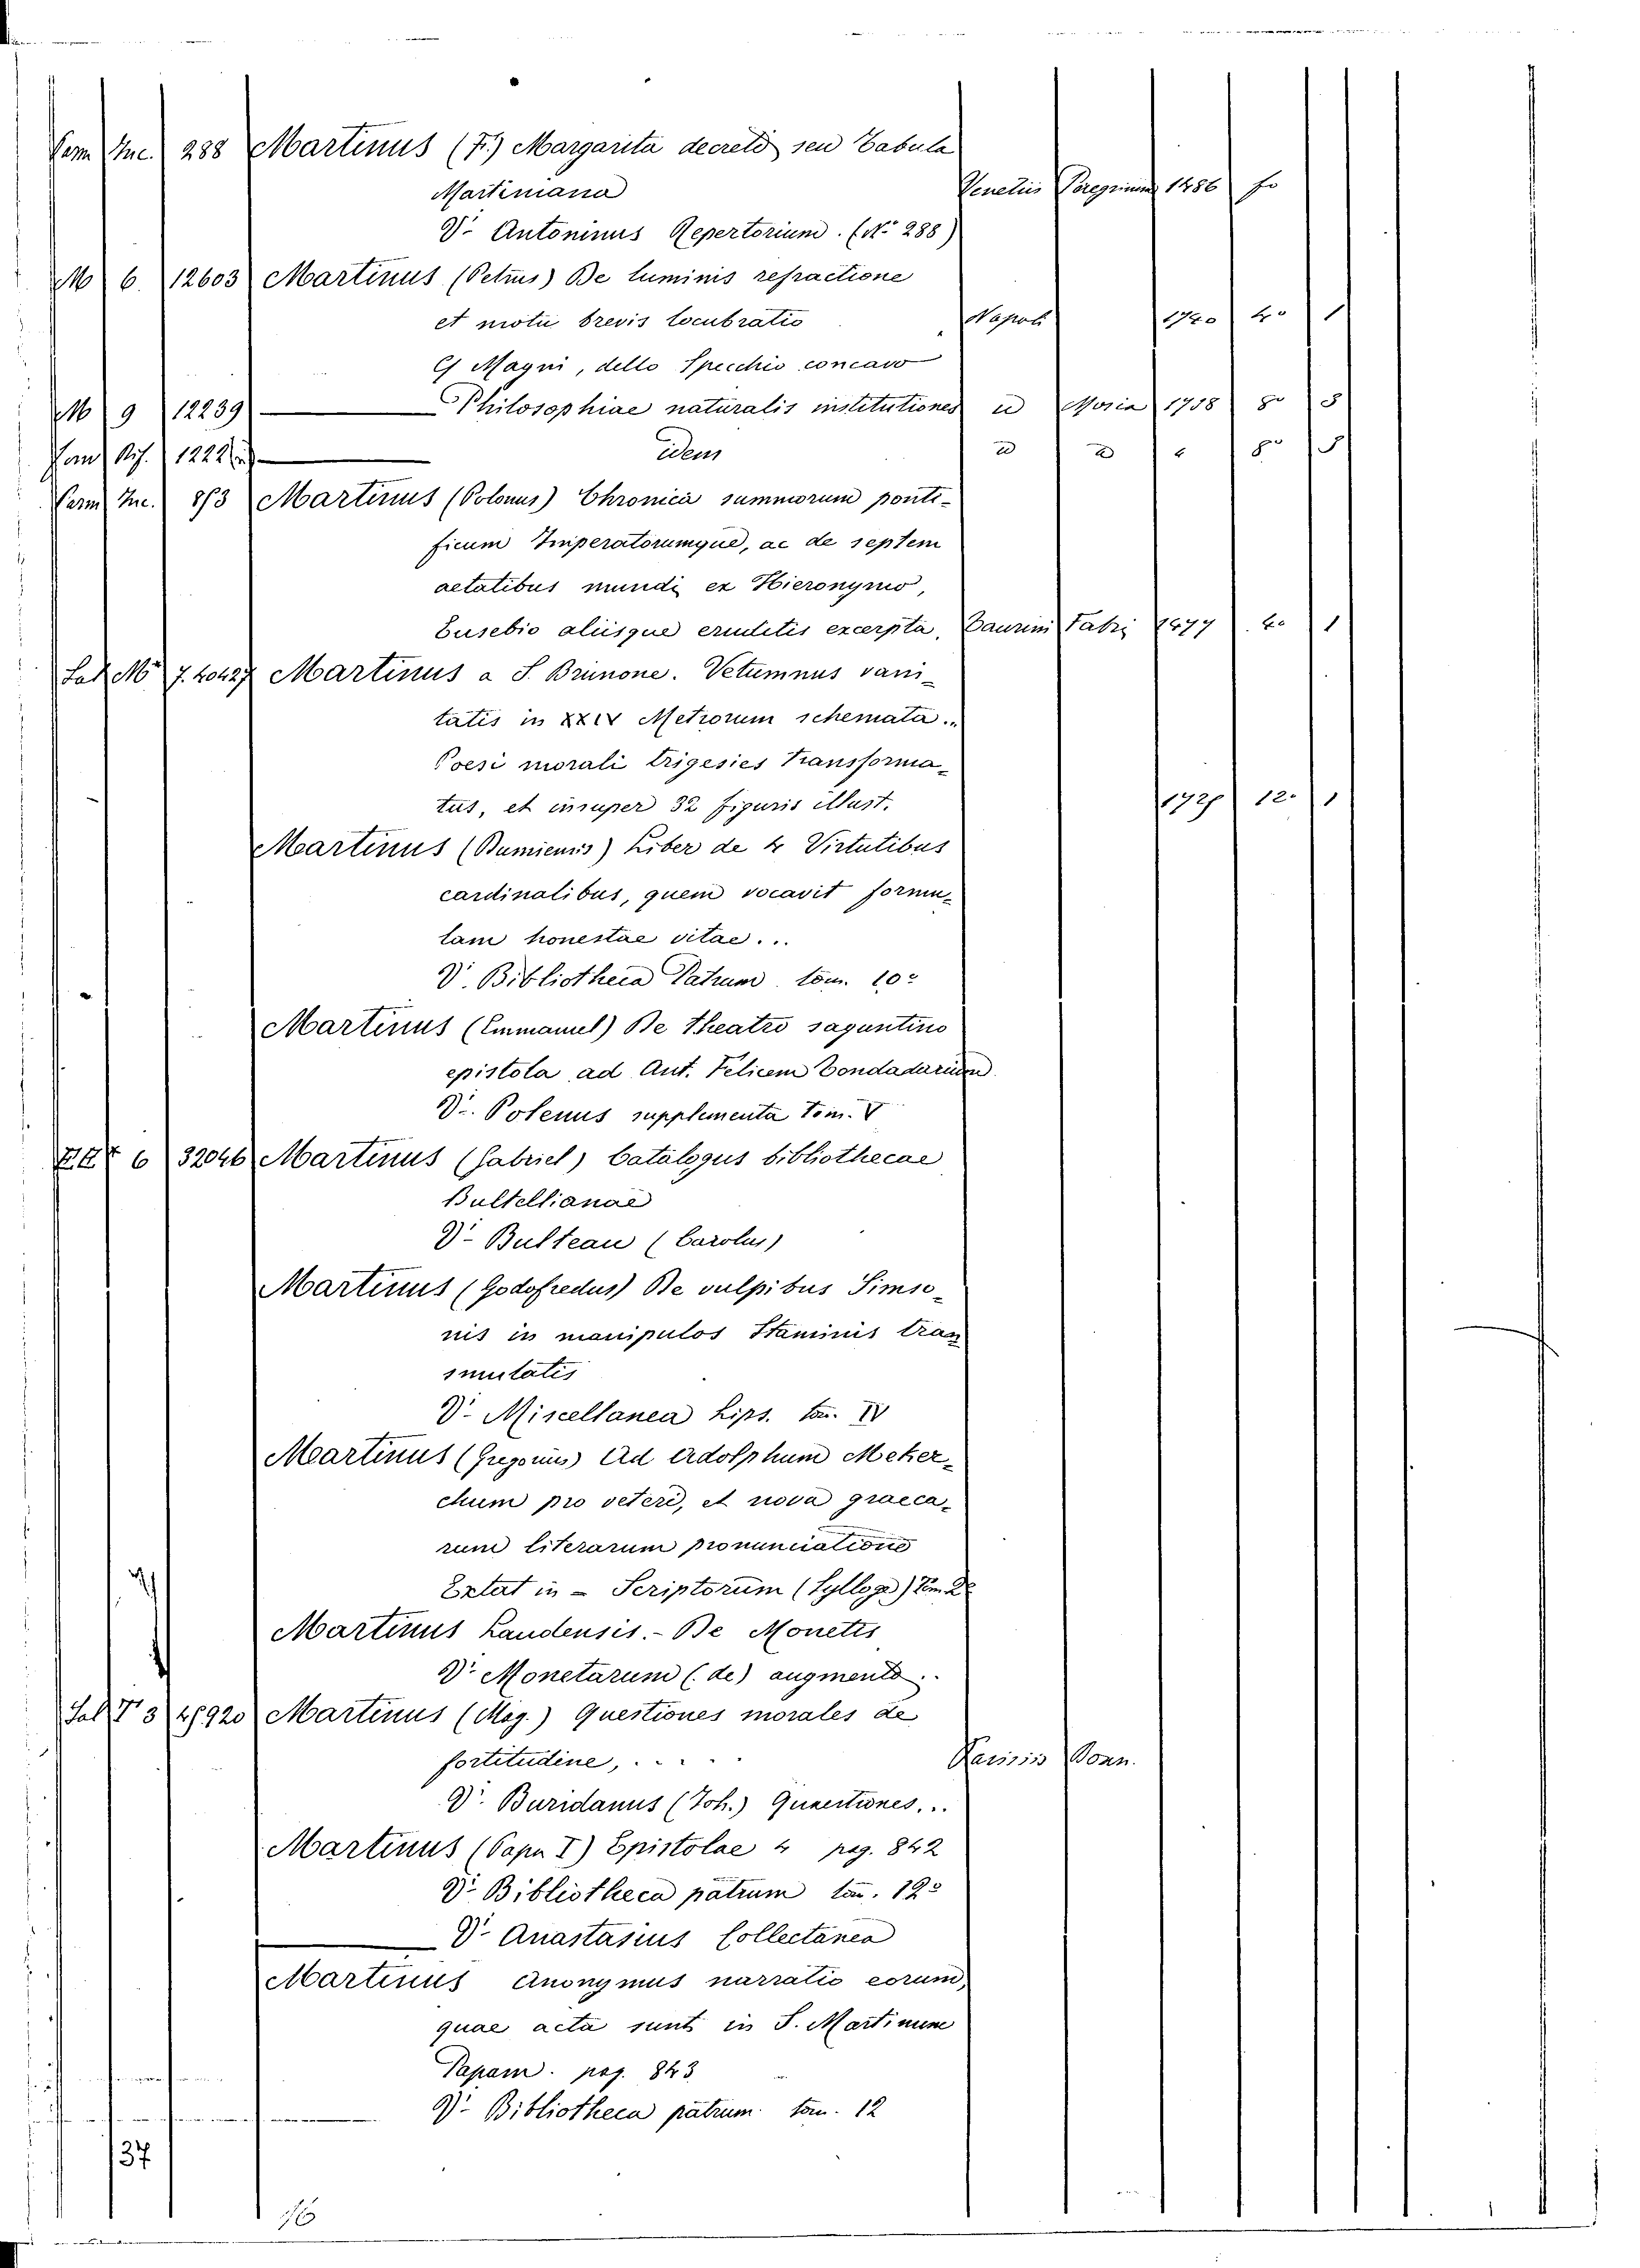 Inc. 288 Martinus (F.) Margarita decreti seu Tabula
Martiniana Venetiis 1486 fo
V. Antoninus Repertorium. (N. 288)
M 6. 12603 Martinus (Petrus) De luminis refractione
et motu brevis locubratio Napoli 1740 4o 1
Cf Magni, dello Specchio concavo
M 9 12239 Philosophiae naturalis institutiones id 1738 8o 3
Rif. idem 8o 3
Inc. 813 Martinus (Polonus) Chronica summorum ponti-
ficum Imperatorumque, ac de septem
aetatibus mundi ex Hieronymo,
Eusebio aliisque eruditis excerpta, Taurini Fabri 1477 4o 1
Sal M 7. 40427 Martinus a S. Brunone. Vetumnus vani-
tatis in XXIV Metrorum schemata..
Poesi morali trigesies transforma-
tus, et insuper 32 figuris illust. 1725 12o 1
Martinus (Dumiensis) Liber de 4 Virtutibus
cardinalibus, quem vocavit formu-
lam honestae vitae...
V. Bibliotheca Patrum tom. 10o
Martinus (Emmanuel) De theatro saguntino
epistola ad Ant. Felicem Zondadarium
V. Polenus supplementa tom. V
6 32046 Martinus (Gabriel) Catalogus bibliothecae
Bultellianae
V. Bulteau (Carolus)
Martinus (Godofredus) De vulpibus Simso-
nis in manipulos Staminis tran
smutatis
V. Miscellanea Lips. tom. IV
Martinus (Gregorius) Ad Adolphum Meker-
chum pro veteri, et nova graeca-
rum literarum pronunciatione
Extat in - Scriptorum (Sylloge) Tom 2o
Martinus Laudensis. - De Monetis
V. Monetarum (de) augmento..
Sal T 3 48920 Martinus (Mag.) Questiones morales de
fortitudine, .... Parisiis Bonn.
V. Buridanus (Joh.) Quaestiones...
Martinus (Papa I) Epistolae 4 pag. 842
V. Bibliotheca patrum tom. 12o
V. Anastasius Collectanea
Martinus Anonymus narratio eorum,
quae acta sunt in S. Martinum
Papam. pag. 843
V. Bibliotheca patrum tom. 12
37